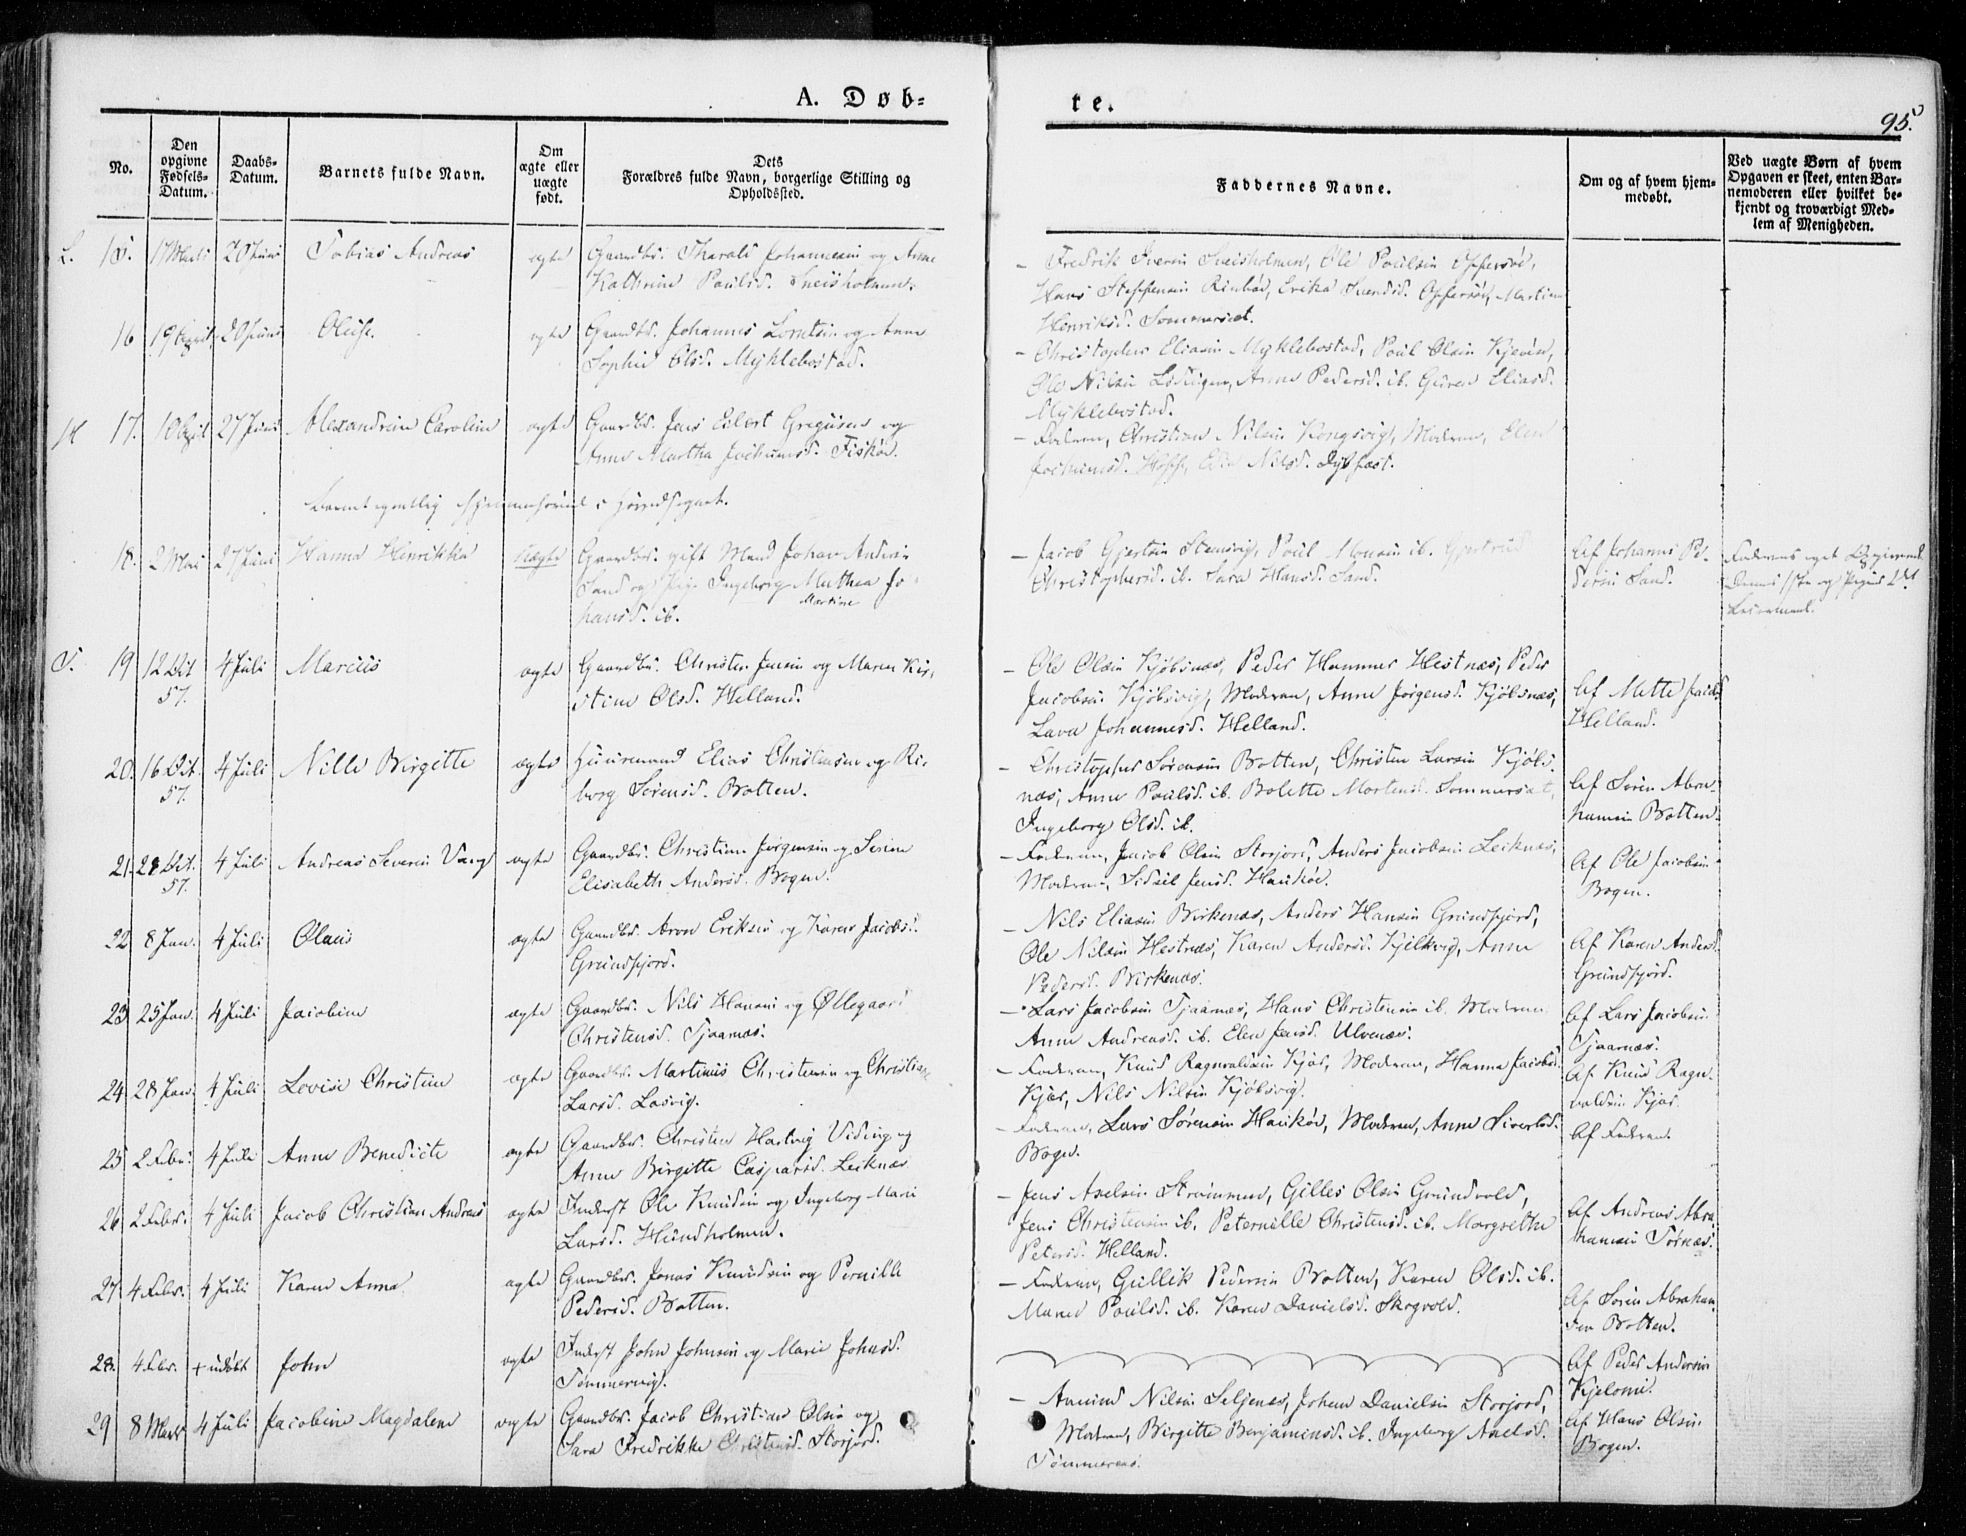 A. Døb-
te.
95.
No.
Den
opgivne
Fødsels-
Datum.
Daabs-
Datum.
Barnets fulde Navn.
Om
ægte eller
uægte
født.
Dets
Forældres fulde Navn, borgerlige Stilling og
Opholdssted.
Faddernes Navne.
Om og af hvem hjem-
medøbt.
Ved uægte Børn af hvem
Opgaven er skeet, enten Bar-
nemoderen eller hvilket be-
kjendt og troværdigt Med-
lem af Menigheden.
L. 15. 17 Marts 20 Juni Tobias Andreas ægte Gaardbr. Tharald Johannesen og Anne
Kathrine Paulsd. Sneisholmen.
- Fredrik Iversen Sneisholmen, Ole Poulsen Offersøe,
Hans Steffensen Rinbøe, Erika Svendsd. Offersøe, Martine
Henriksd. Sommersæt.
16 19 April 20 Juni Oluf. ægte Gaardbr. Johannes Lorntsen og Anne
Sophie Olsd. Myklebostad.
- Christopher Eliasen Myklebostad, Poul Olsen Kjeøen,
Ole Nilsen Lødingen, Anne Pedersd. ib. Guren Eliasd.
Myklebostad.
H 17. 10 April 27 Juni Alexandrine Caroline ægte Gaardbr. Jens Eilert Gregusen og
Anne Martha Jochumsd. Fiskøe.
- Faderen, Christian Nilsen Kongsvig, Moderen, Elen
Jochumsd. Hoff, Nilsd. Dybfæst.
Barnet egentlig hjemmehørende i
18. 2 Mai 27 Juni Hanna Henrikka uægte Gaardbr. gift Mand Johan Anders.
Sand og Pige Ingeborg Mathea Jo-
Martine
hansd. ib.
- Jacob Gjertsen Stensvig, Poul Monsen ib. Gjertrud
Christophersd. ib. Sara Hansd. Sand.
Af Johannes Pe-
dersen Sand.
Faderens eget Opgivende
og Pigens 2det
Leiermaal.
T. 19 12 Oct 57. 4 Juli Marcus ægte Gaardbr. Christen Jensen og Maren Kir-
stine Olsd. Helland.
- Ole Olsen Kjøbsnæs, Peder Hammer Hestnæs, Peder
Jacobsen Kjøbsvig, Moderen, Anne Jørgensd. Kjøbsnæs,
Lava Johannesd. Helland.
Af Mette Jacobsd
Helland.
20. 16 Oct. 57. 4 Juli Nille Birgitte ægte Huusmand Elias Christensen og Ri-
borg Sørensd. Botten.
- Christopher Sørensen Botten, Christen Larsen Kjøbs-
næs, Anne Poulsd. ib. Bolette Mortensd. Sommersæt,
Ingeborg Olsd. ib.
Af Søren Abra-
hamsen Botten.
21. 28 Oct. 57. 4 Juli Andreas Severin Vang ægte Gaardbr. Christian Jørgensen og Serine
Elisabeth Andersd. Bogen.
- Faderen, Jacob Olsen Storjord, Anders Jacobsen Leiknæs,
Moderen, Sidsel Jensd. Haukøe.
Af Ole Jacobsen
Bogen.
22 8 Jan. 4 Juli Olaus ægte Gaardbr. Aron Eriksen og Karen Jacobsd.
Grundfjord.
- Nils Eliasen Birkenæs, Anders Hansen Grundfjord,
Ole Nilsen Hestnæs, Karen Andersd. Kjelkvig, Anne
Pedersd. Birkenæs.
Af Karen Andersd.
Grundfjord.
23 25 Jan. 4 Juli Jacobine ægte Gaardbr. Nils Hansen og Øllegaard
Christensd. Tjaarnæs.
- Lars Jacobsen Tjaarnæs, Hans Christensen ib. Moderen
Anne Andreasd. ib. Elen Jensd. Ulvenæs.
Af Lars Jacobsen
Tjaarnæs.
24 28 Jan. 4 Juli Lovise Christine ægte Gaardbr. Martinus Christensen og Christiane
Larsd. Losvig.
- Faderen, Knud Ragnvaldsen Kjær, Moderen, Hanna Jacobsd.
Kjær, Nils Nilsen Kjøbsvig.
Af Knud Ragn-
valdsen Kjær
25 2 Febr. 4 Juli Anne Benedicte ægte Gaardbr. Christen Hartvig Viding og
Anne Birgitte Caspersd. Leiknæs
- Faderen, Lars Sørensen Haukøe, Moderen, Anne Sivertsd.
Bogen.
Af Faderen.
26 2 Febr. 4 Juli Jacob Christian Andreas ægte Inderst Ole Knudsen og Ingeborg Marie
Larsd. Hundholmen.
- Jens Axelsen Strømmen, Gilles Olsen Grundvold,
Jens Christensen ib. Peternille Christensd. ib. Margrethe
Petersd. Helland.
Af Andreas Abra
hamsen Tørnæs.
27 4 Febr. 4 Juli Karen Anna ægte Gaardbr. Jonas Knudsen og Pernille
Pedersd. Botten.
- Faderen, Gullik Pedersen Botten, Karen Olsd. ib.
Maren Poulsd. ib. Karen Danielsd. Skogvold.
Af Søren Abraham
sen Botten.
28. 4 Febr. + udøbt John ægte Inderst John Johnsen og Marie Johnsd.
Tømmervig.
Af Peder Andersen
Kjelomi.
29 8 Marts 4 Juli Jacobine Magdalene ægte Gaardbr. Jacob Christian Olsen og
Sara Fredrikke Christensd. Storjord.
- Amund Nilsen Seljenæs, Johan Danielsen Storjord,
Moderen, Birgitte Benjaminsd. ib. Ingeborg Axelsd.
Tømmernæs.
Af Hans Olsen
Bogen.